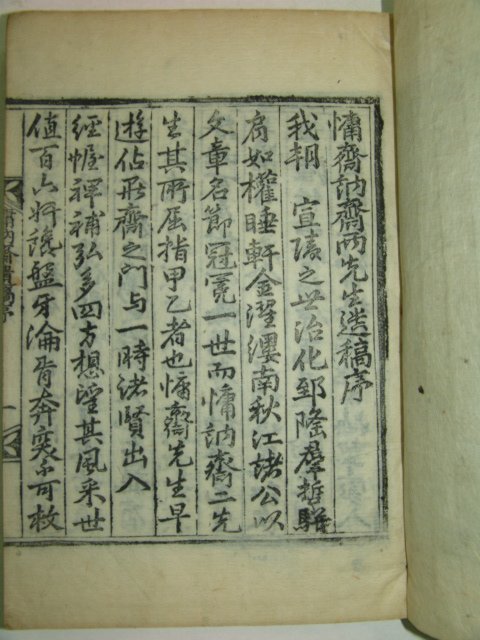 慵齋訥齋兩先生遺稿序
我朝 宣陵之世治化郅隆羣哲騈
肩如權睡軒金濯纓南秋江諸公以
文章名節冠冕一世而慵訥齋二先
生其所屈指甲乙者也慵齋先生早
遊佔畢齋之門与一時諸賢出入
經幄裨補弘多四方想望其風采世
值百六奸讒盤牙淪胥奔突不可救
慵訥齋遺稿序
一